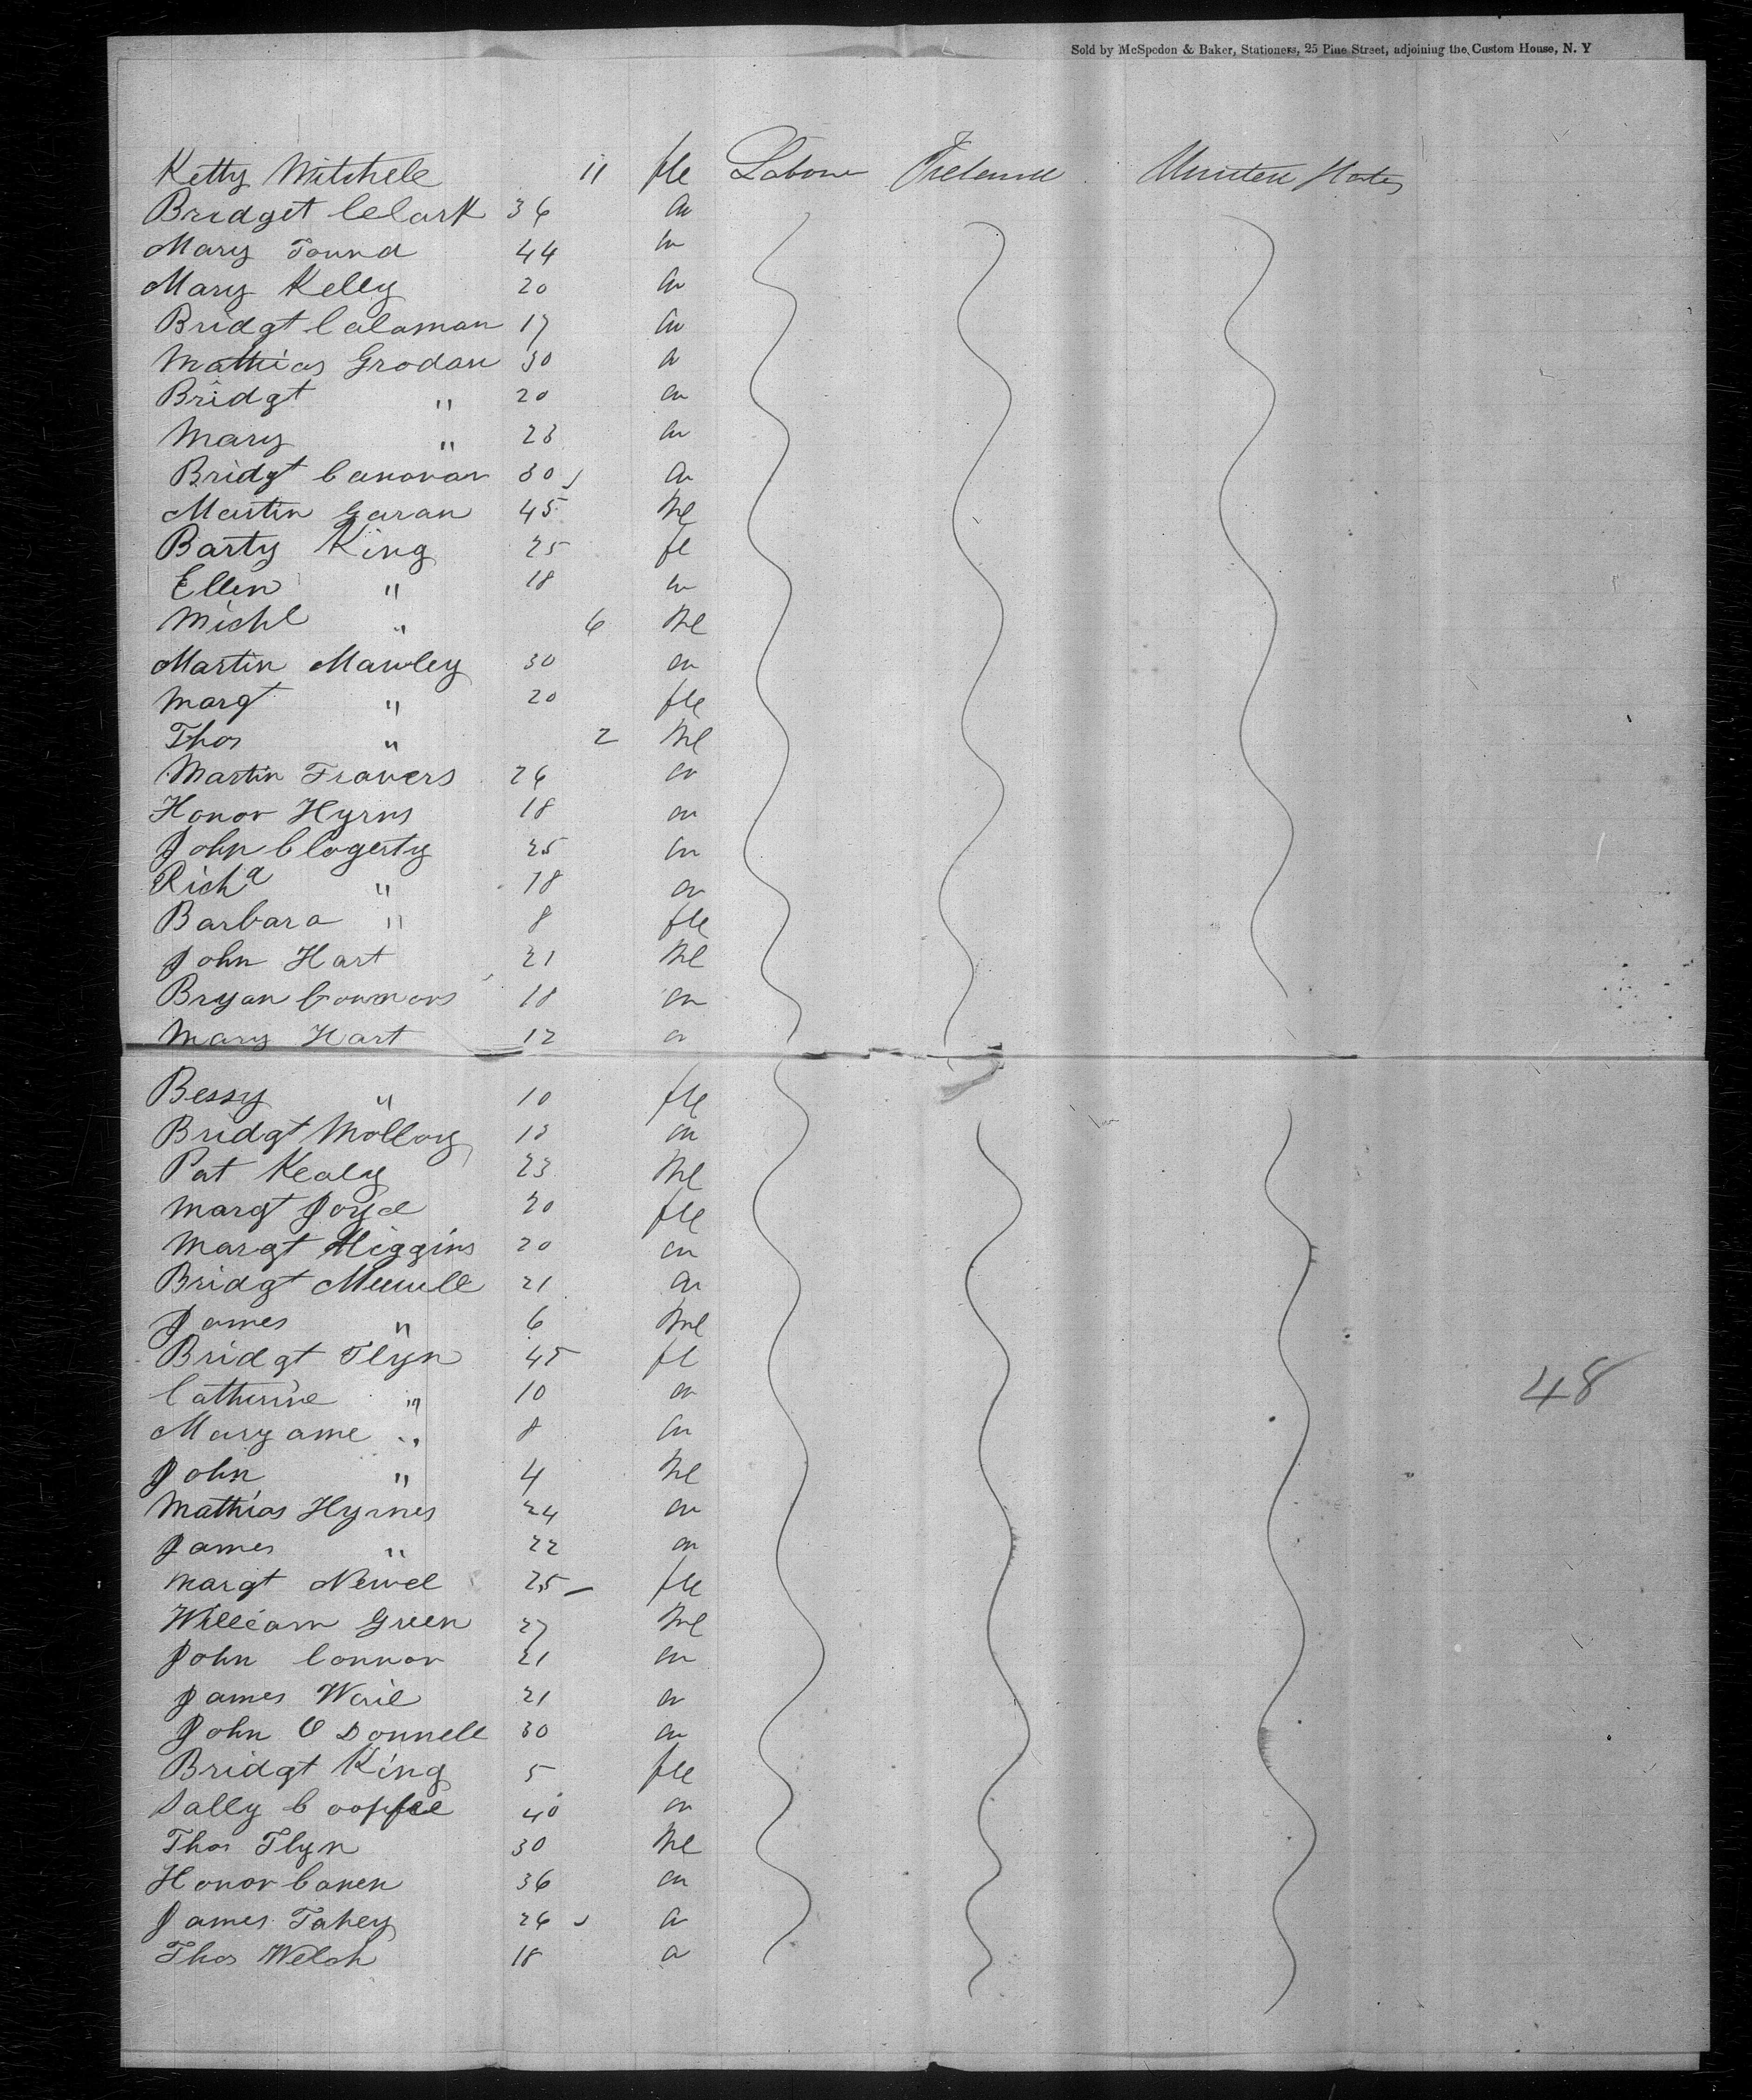 Sold by McSpedon & Baker, Stationers, 25 Pine Street, adjoining the Custom House, N. Y
Ketty Mitchele 11 fle Labour Ireland United States
Bridget Clark 36 "
Mary Tound 44 "
Mary Kelly 20 "
Bridgt Calaman 17 "
Mathias Grodan 30 "
Bridgt " 20 "
Mary " 23 "
Bridgt Canovan 30 "
Martin Garan 45 Ml
Barty King 25 fl
Ellen " 18 "
Michl " 6 Ml
Martin Mawley 30 "
Margt " 20 fle
Thos " 2 Ml
Martin Travers 26 "
Honor Hyrns 18 "
John Clogerty 25 "
Richd " 18 "
Barbara " 8 fle
John Hart 21 Ml
Bryan Conmons 18 "
Mary Hart 12 "
Bessy " 10 fle
Bridgt Molloy 13 "
Pat Kealy 23 Ml
Margt Joyce 20 fle
Margt Higgins 20 "
Bridgt 21 "
James " 6 Ml
Bridgt Flyn 45 fl
Catherine " 10 "
Mary ame " 8 "
John " 4 Ml
Mathias Hyrnes 24 "
James " 22 "
Margt Newel 25 fle
William Green 27 Ml
John Connor 21 "
James 21 "
John O Donnell 30 "
Bridgt King 5 fle
Sally 40 "
Thos Flyn 30 Ml
Honor Canen 36 "
James Fahey 26 "
Thos Welch 18 "
48